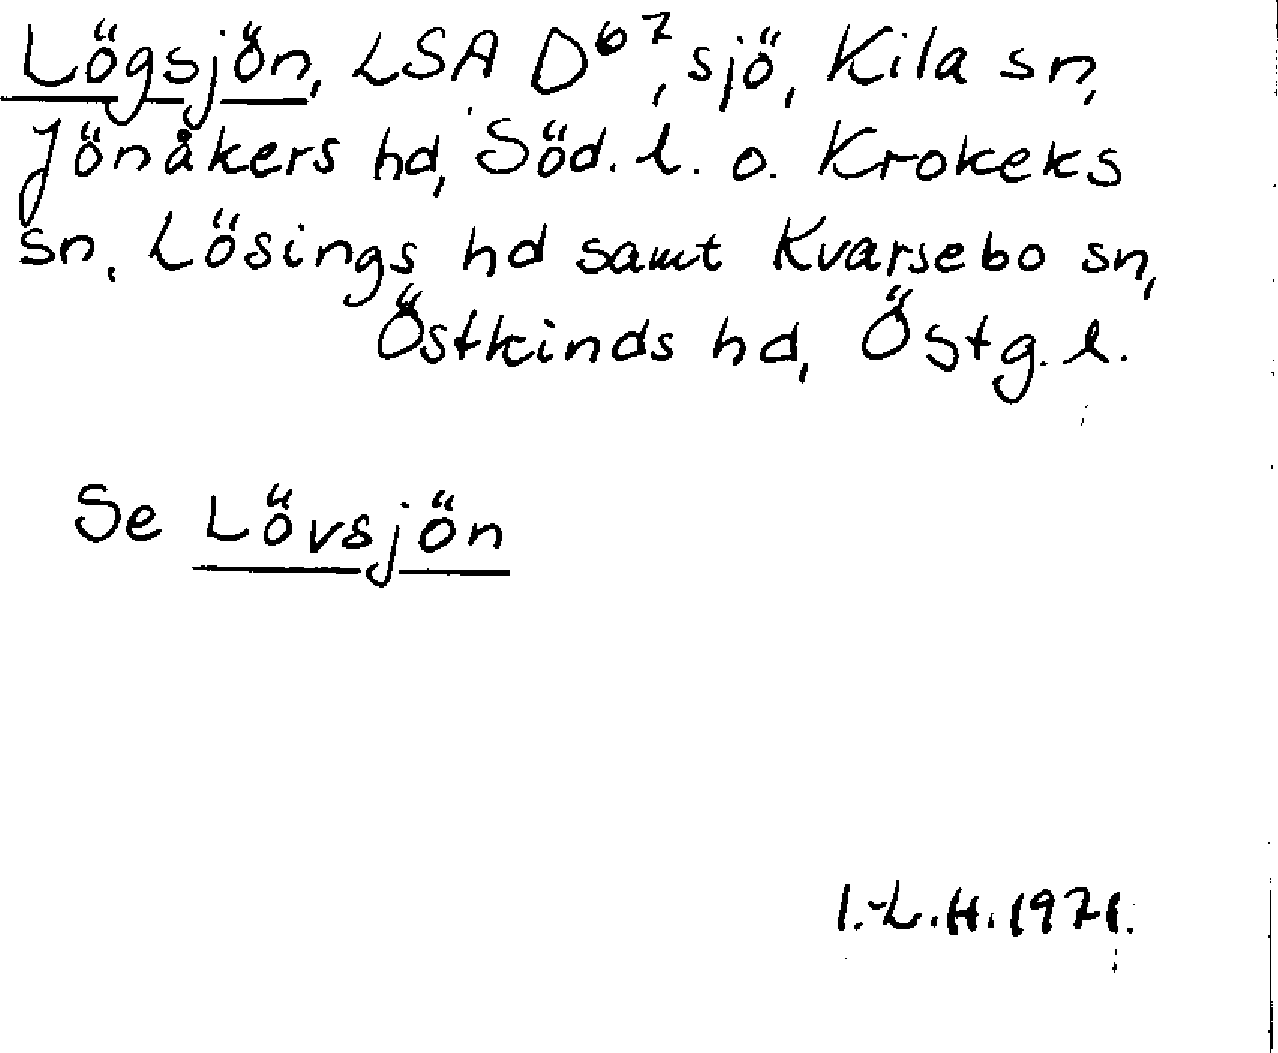 Lögsjön, LSA D⁶⁷, sjö, Kila sn,
Jönåkers hd, Söd. l. o. Krokeks
sn, Lösings hd samt Kvarsebo sn,
Östkinds hd, Östg. l.
Se Lövsjön
I.-L.H. 1971.